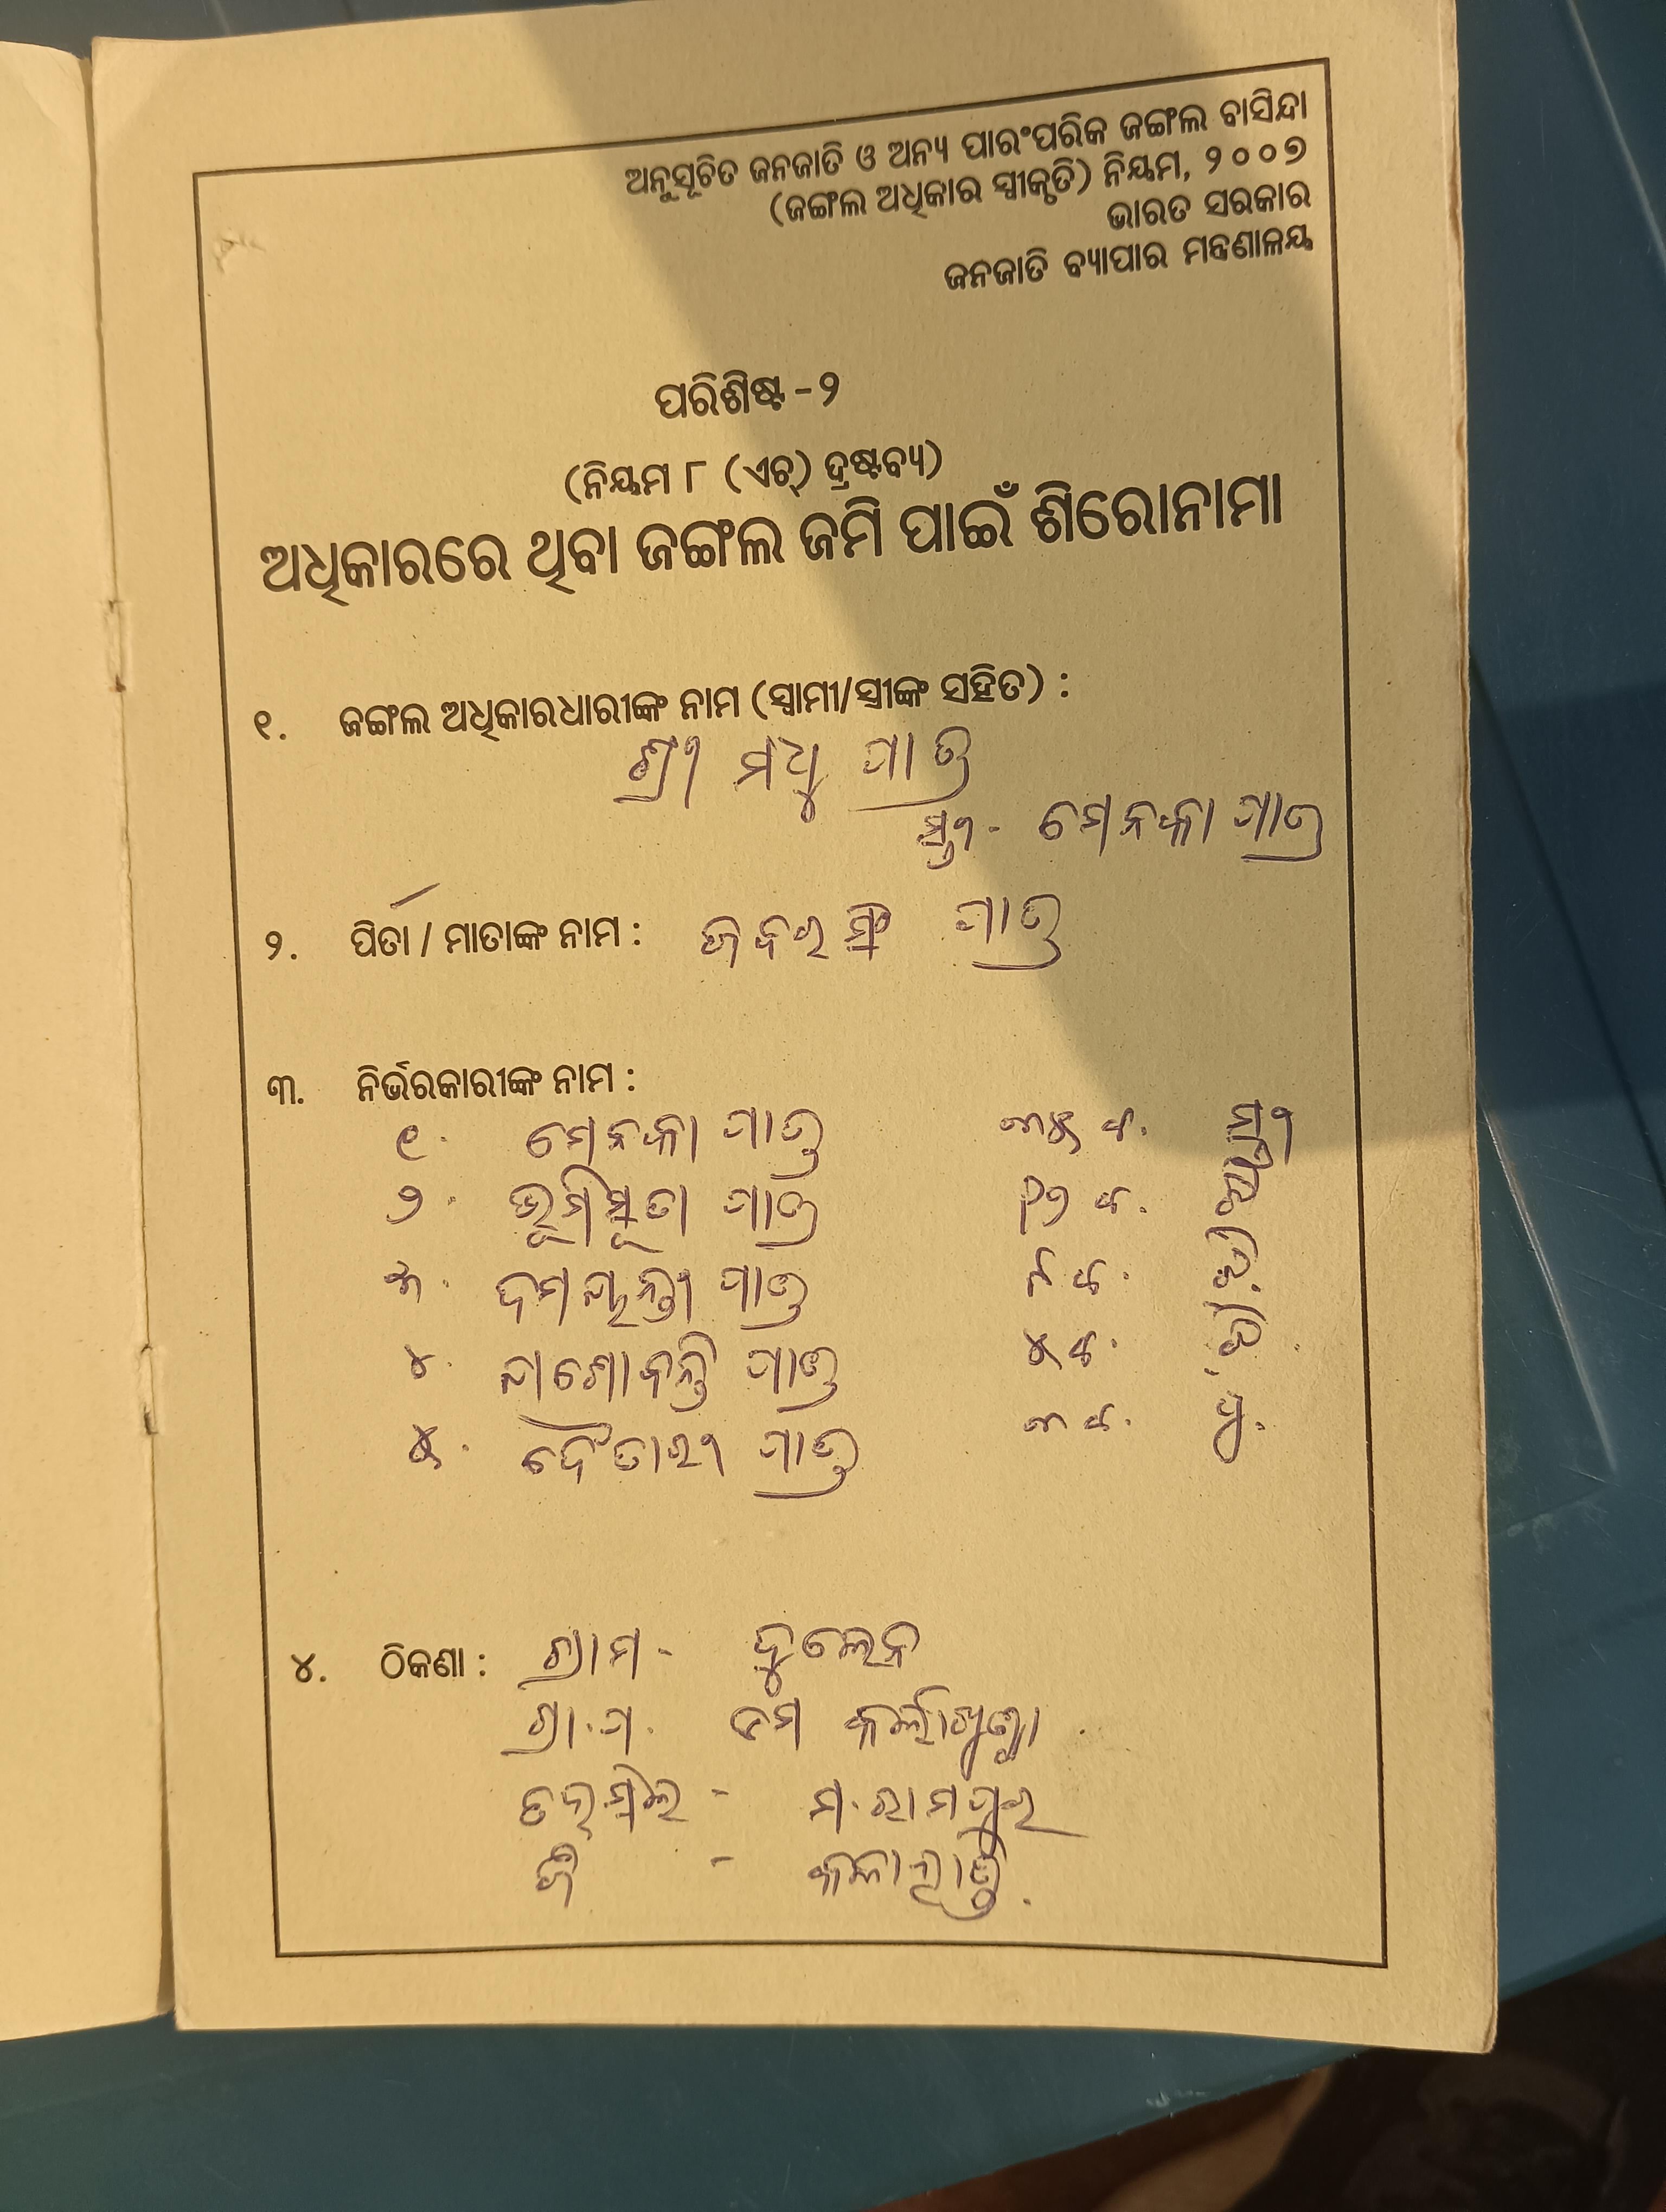 ଅନୁସୂଚିତ ଜନଜାତି ଓ ଅନ୍ୟ ପାରଂପରିକ ଜଙ୍ଗଲ ବାସିନ୍ଦା
(ଜଙ୍ଗଲ ଅଧିକାର ସ୍ୱୀକୃତି) ନିୟମ, ୨୦୦୭
ଭାରତ ସରକାର
ଜନଜାତି ବ୍ୟାପାର ମନ୍ତ୍ରଣାଳୟ
ପରିଶିଷ୍ଟ -୨
(ନିୟମ ୮ (ଏଚ୍) ଦ୍ରଷ୍ଟବ୍ୟ)
ଅଧିକାରରେ ଥିବା ଜଙ୍ଗଲ ଜମି ପାଇଁ ଶିରୋନାମା
୧. ଜଙ୍ଗଲ ଅଧିକାରଧାରୀଙ୍କ ନାମ (ସ୍ୱାମୀ/ସ୍ତ୍ରୀଙ୍କ ସହିତ) :
ଶ୍ରୀ ମଧୁ ପାତ୍ର
ସ୍ତ୍ରୀ- ମେନକା ପାତ୍ର
୨. ପିତା / ମାତାଙ୍କ ନାମ : ପାତ୍ର
୩. ନିର୍ଭରକାରୀଙ୍କ ନାମ :
୧. ମେନକା ପାତ୍ର ୩୫ ବ. ସ୍ତ୍ରୀ
୨. ଭୂମିସୂତା ପାତ୍ର ୧୨ ବ. ଝିଅ
୩. ଦମୟନ୍ତୀ ପାତ୍ର ୮ ବ. ଝି.
୪. ଯାଶୋବନ୍ତି ପାତ୍ର ୫ ବ. ଝି.
୫. ଦୈତାରୀ ପାତ୍ର ୩ ବ. ପୁ.
୪. ଠିକଣା : ଗ୍ରାମ - ଦୁଲେନ
ଗ୍ରା.ପ.
ତହସିଲ - ମ.ରାମପୁର
ଜି - କଳାହାଣ୍ଡି.